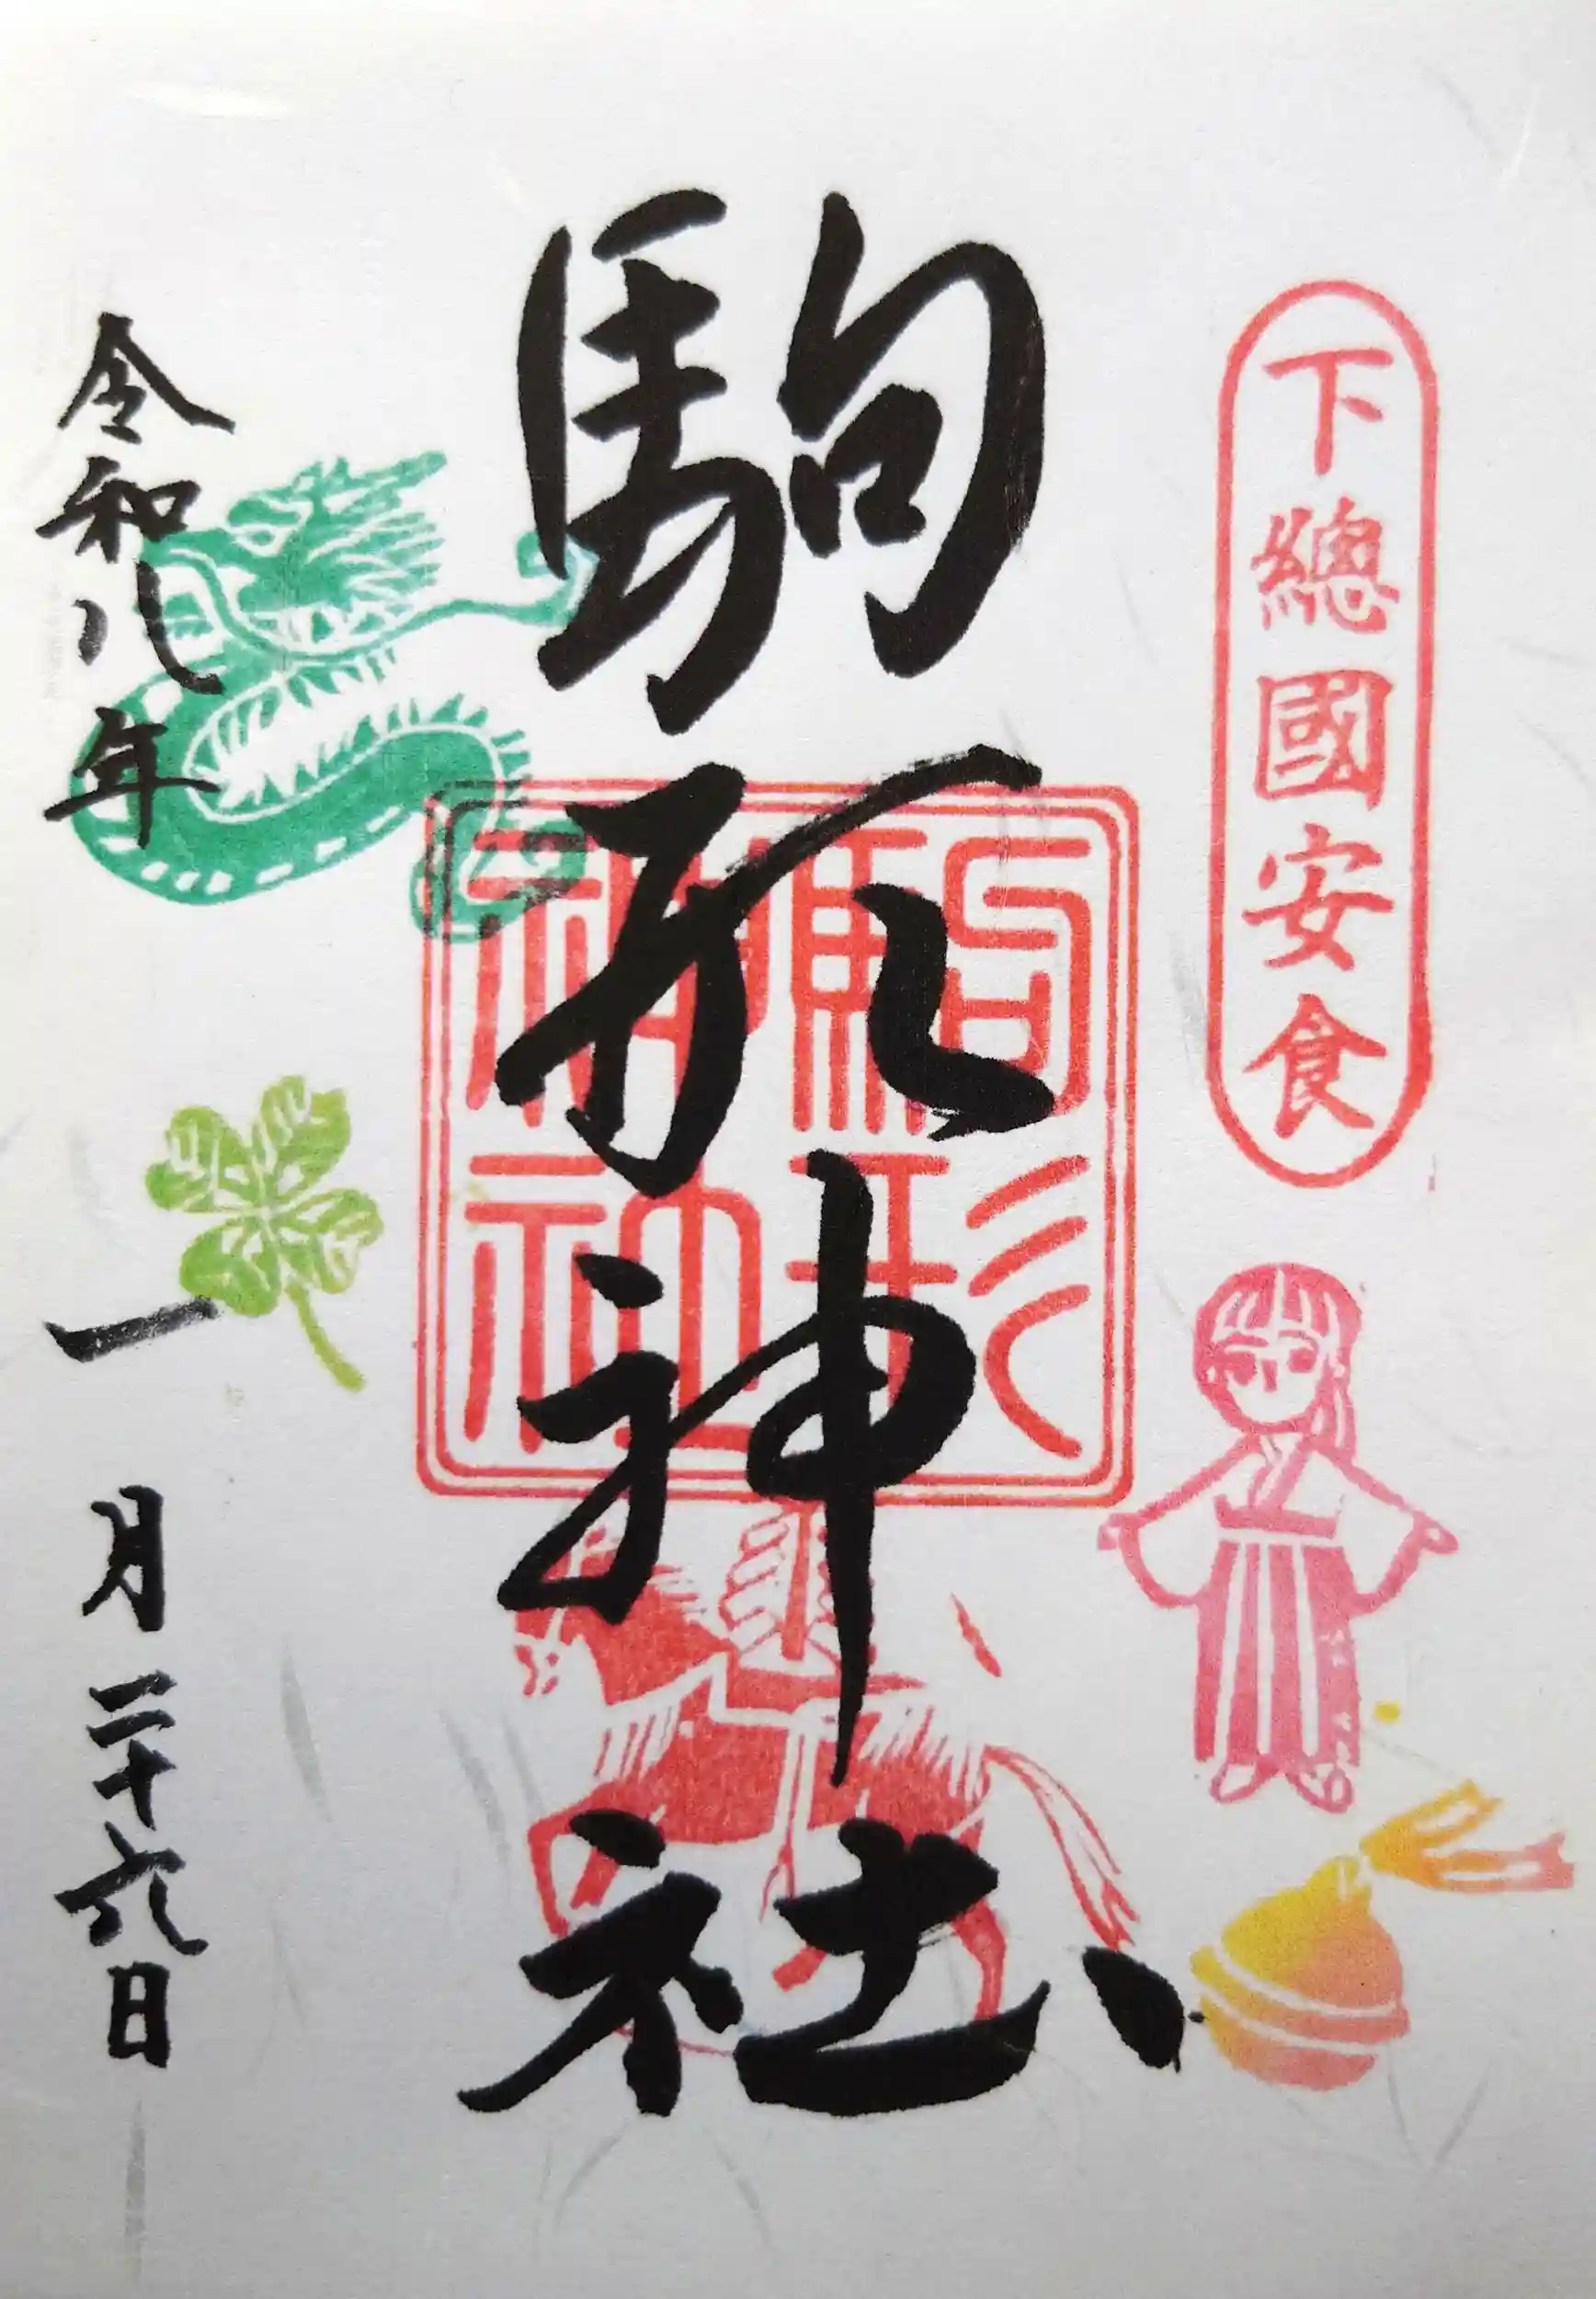 下總國安食
駒形神社
駒形
神社
令和八年
一月二十六日